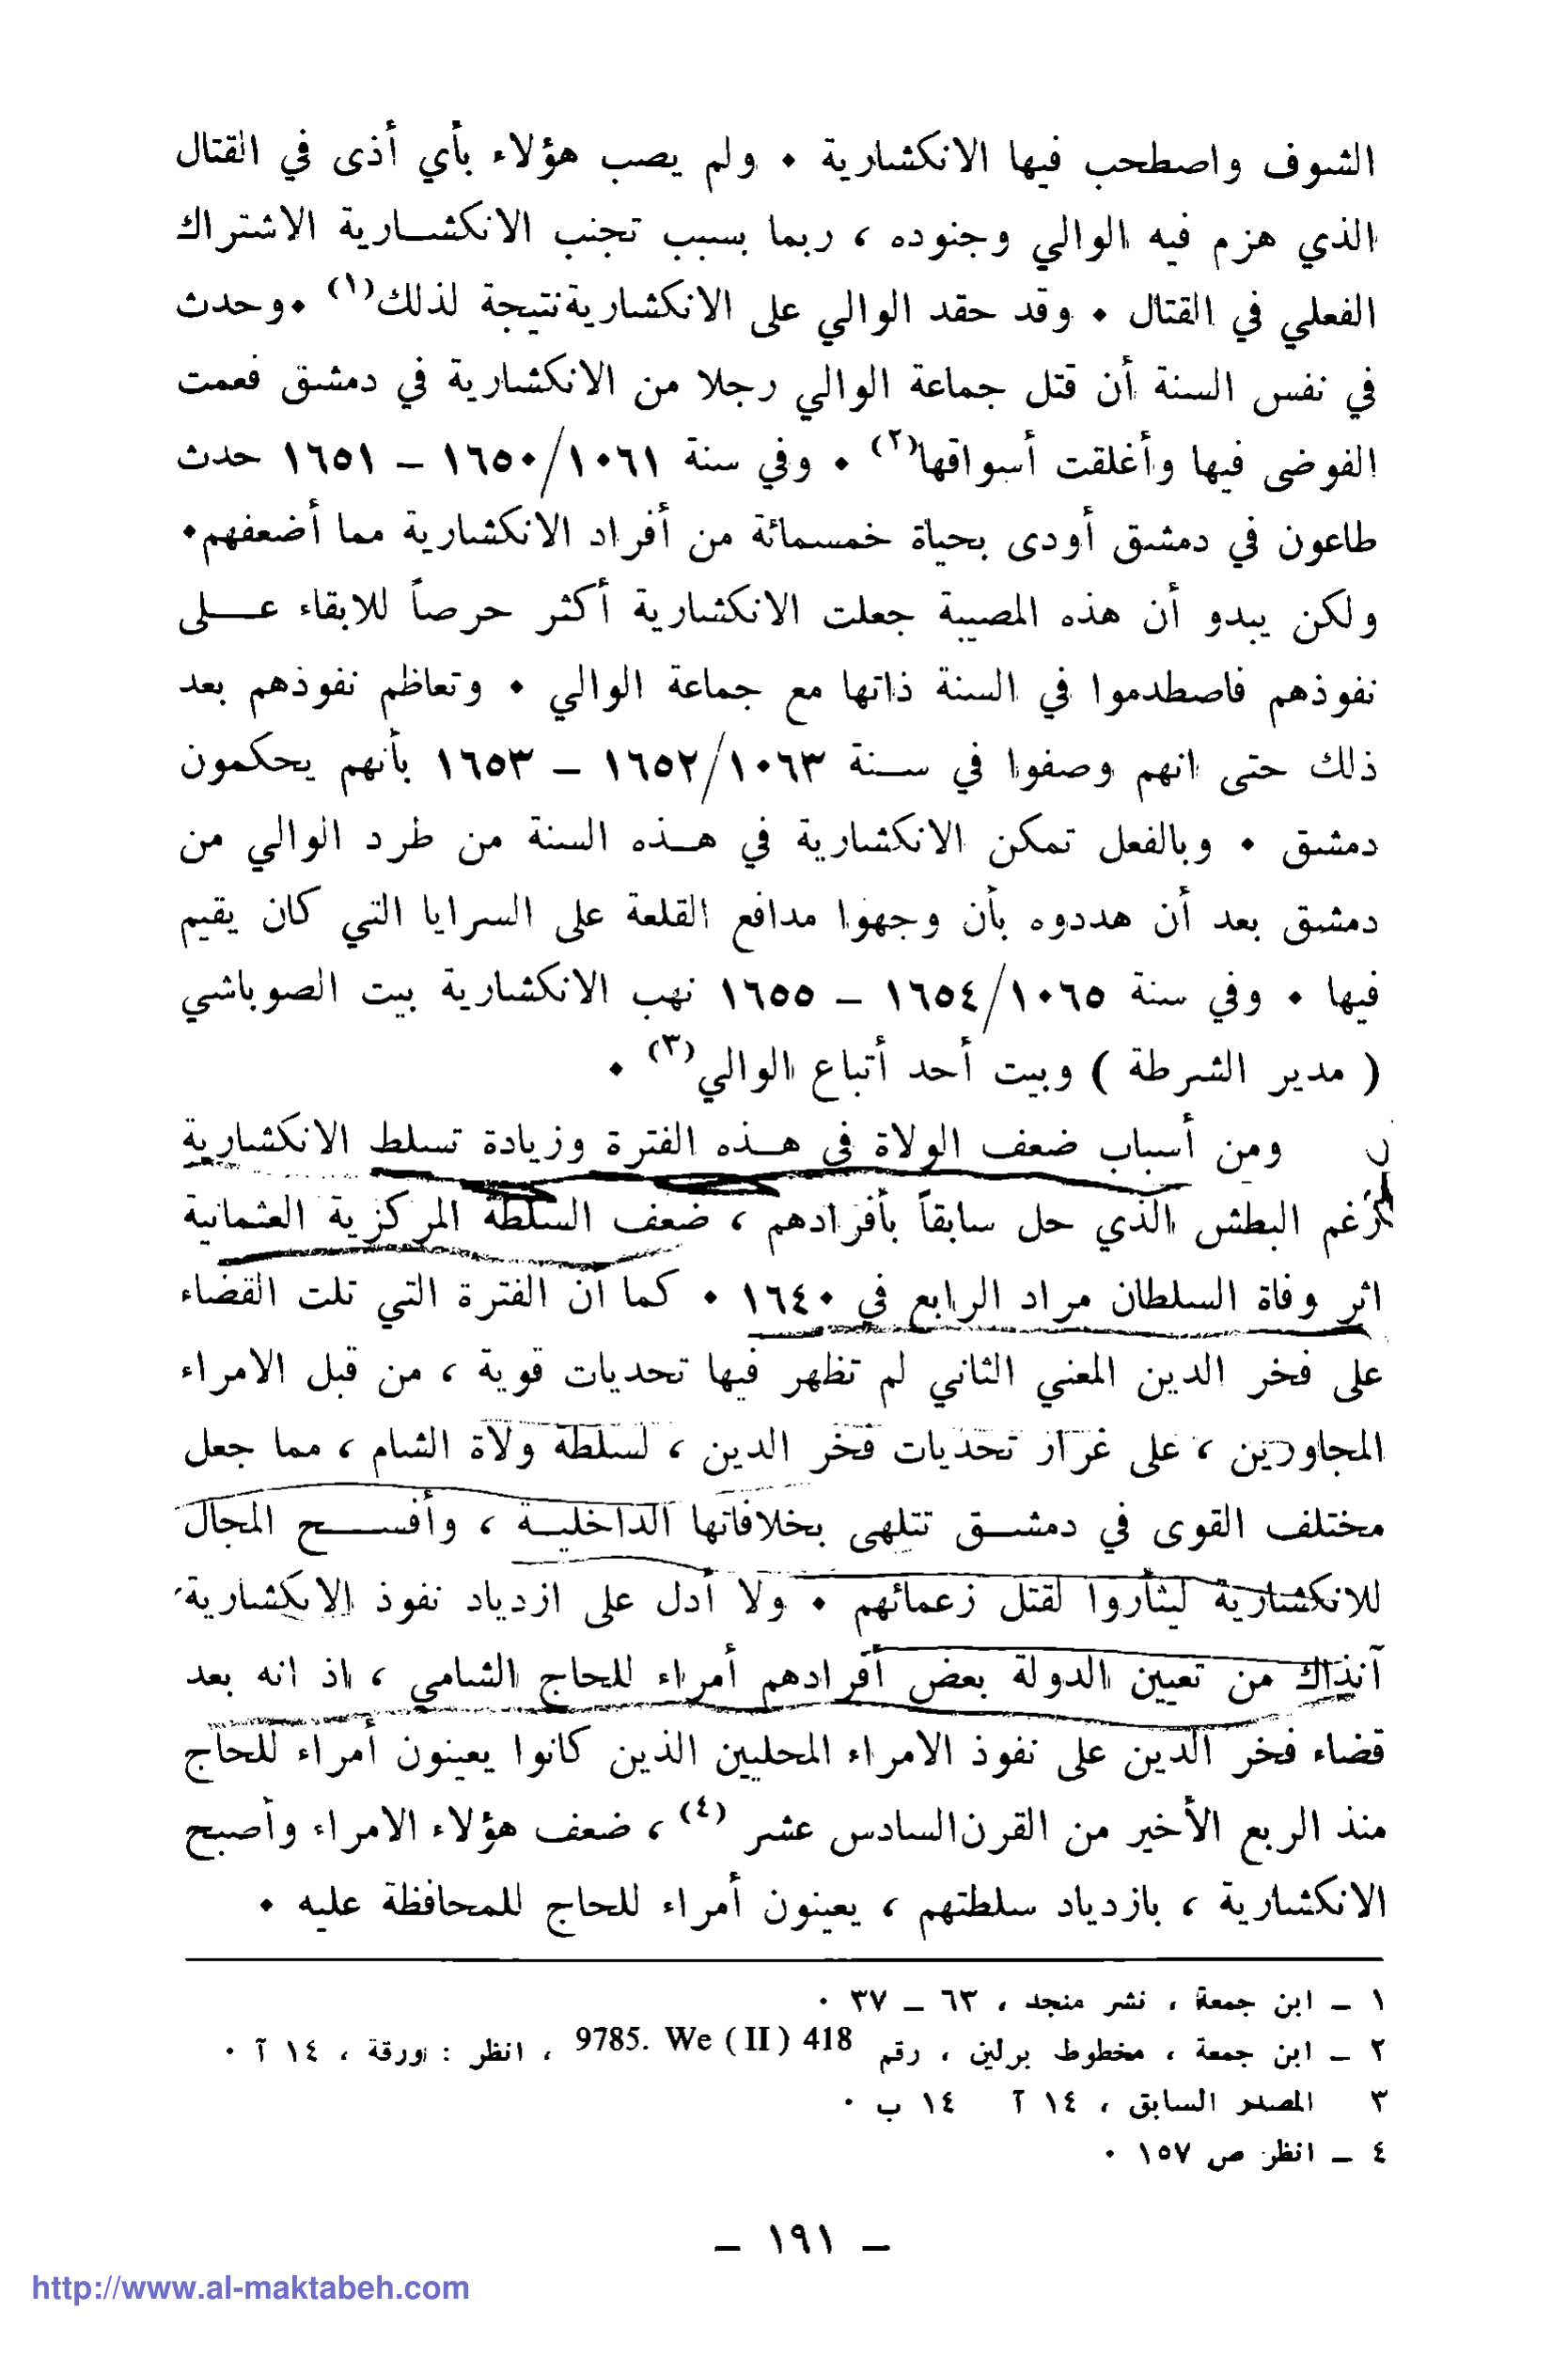 الشوف واصطحب فيها الانكشارية ٠ ولم يصب هؤلاء بأي أذى في القتال
الذي هزم فيه الوالي وجنوده ، ربما بسبب تجنب الانكشـارية الاشتراك
الفعلي في القتال ٠ وقد حقد الوالي على الانكشارية نتيجة لذلك(١) ٠وحدث
في نفس السنة أن قتل جماعة الوالي رجلا من الانكشارية في دمشق فعمت
الفوضى فيها وأغلقت أسواقها(٢) ٠ وفي سنة ١٠٦١/١٦٥٠ – ١٦٥١ حدث
طاعون في دمشق أودى بحياة خمسمائة من أفراد الانكشارية مما أضعفهم٠
ولكن يبدو أن هذه المصيبة جعلت الانكشارية أكثر حرصاً للابقاء عـــلى
نفوذهم فاصطدموا في السنة ذاتها مع جماعة الوالي ٠ وتعاظم نفوذهم بعد
ذلك حتى انهم وصفوا في سـنة ١٠٦٣/١٦٥٢ – ١٦٥٣ بأنهم يحكمون
دمشق ٠ وبالفعل تمكن الانكشارية في هـذه السنة من طرد الوالي من
دمشق بعد أن هددوه بأن وجهوا مدافع القلعة على السرايا التي كان يقيم
فيها ٠ وفي سنة ١٠٦٥/١٦٥٤ – ١٦٥٥ نهب الانكشارية بيت الصوباشي
( مدير الشرطة ) وبيت أحد أتباع الوالي(٣) ٠
ومن أسباب ضعف الولاة في هـذه الفترة وزيادة تسلط الانكشارية
رغم البطش الذي حل سابقاً بأفرادهم ، ضعف السلطة المركزية العثمانية
اثر وفاة السلطان مراد الرابع في ١٦٤٠ ٠ كما أن الفترة التي تلت القضاء
على فخر الدين المعني الثاني لم تظهر فيها تحديات قوية ، من قبل الامراء
المجاورين ، على غرار تحديات فخر الدين ، لسلطة ولاة الشام ، مما جعل
مختلف القوى في دمشـق تتلهى بخلافاتها الداخليـة ، وأفســـح المجال
للانكشارية ليثأروا لقتل زعمائهم ٠ ولا أدل على ازدياد نفوذ الانكشارية
آنذاك من تعيين الدولة بعض أفرادهم أمراء للحاج الشامي ، اذ انه بعد
قضاء فخر الدين على نفوذ الامراء المحليين الذين كانوا يعينون أمراء للحاج
منذ الربع الأخير من القرن السادس عشر (٤) ، ضعف هؤلاء الامراء وأصبح
الانكشارية ، بازدياد سلطتهم ، يعينون أمراء للحاج للمحافظة عليه ٠
١ – ابن جمعة ، نشر منجد ، ٦٣ – ٣٧ ٠
٢ – ابن جمعة ، مخطوط برلين ، رقم 9785. We (II) 418 ، انظر : ورقة ، ١٤ آ ٠
٣ المصدر السابق ، ١٤ آ ١٤ ب ٠
٤ – انظر ص ١٥٧ ٠
– ١٩١ –
http://www.al-maktabeh.com